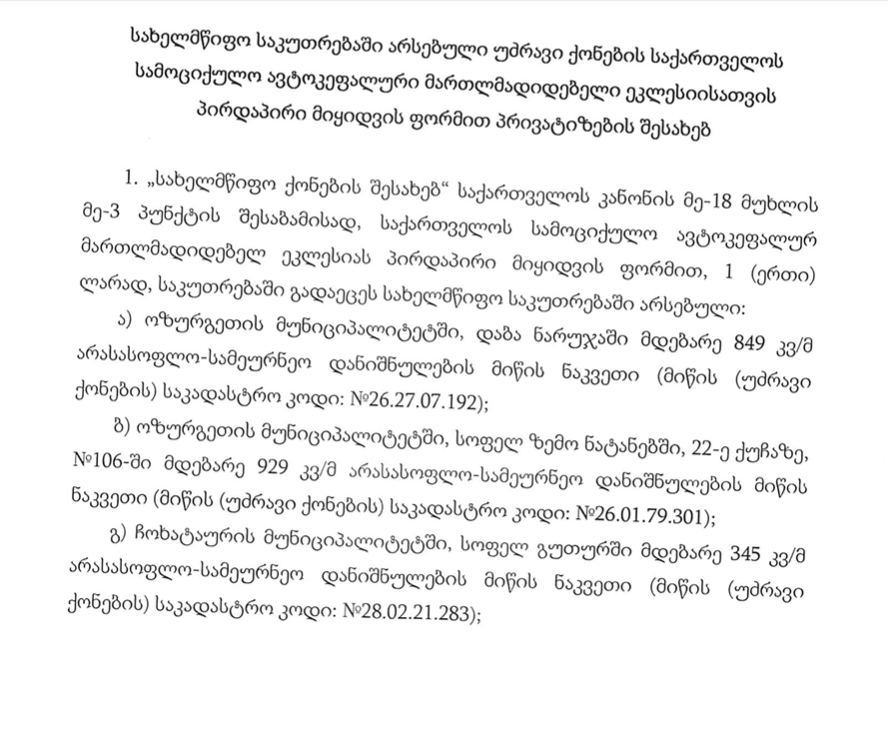 სახელმწიფო საკუთრებაში არსებული უძრავი ქონების საქართველოს
სამოციქულო ავტოკეფალური მართლმადიდებელი ეკლესიისათვის
პირდაპირი მიყიდვის ფორმით პრივატიზების შესახებ
1. „სახელმწიფო ქონების შესახებ“ საქართველოს კანონის მე-18 მუხლის
მე-3 პუნქტის შესაბამისად, საქართველოს სამოციქულო ავტოკეფალურ
მართლმადიდებელ ეკლესიას პირდაპირი მიყიდვის ფორმით, 1 (ერთი)
ლარად, საკუთრებაში გადაეცეს სახელმწიფო საკუთრებაში არსებული:
ა) ოზურგეთის მუნიციპალიტეტში, დაბა ნარუჯაში მდებარე 849 კვ/მ
არასასოფლო-სამეურნეო დანიშნულების მიწის ნაკვეთი (მიწის (უძრავი
ქონების) საკადასტრო კოდი: №26.27.07.192);
ბ) ოზურგეთის მუნიციპალიტეტში, სოფელ ზემო ნატანებში, 22-ე ქუჩაზე,
№106-ში მდებარე 929 კვ/მ არასასოფლო-სამეურნეო დანიშნულების მიწის
ნაკვეთი (მიწის (უძრავი ქონების) საკადასტრო კოდი: №26.01.79.301);
გ) ჩოხატაურის მუნიციპალიტეტში, სოფელ გუთურში მდებარე 345 კვ/მ
არასასოფლო-სამეურნეო დანიშნულების მიწის ნაკვეთი (მიწის (უძრავი
ქონების) საკადასტრო კოდი: №28.02.21.283);